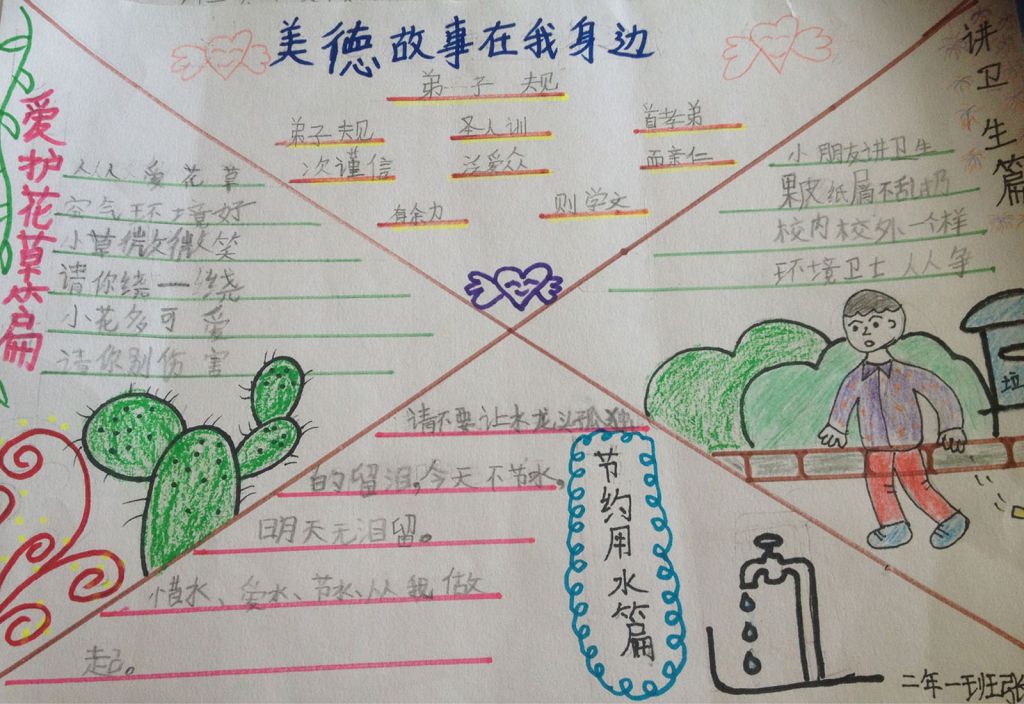 美德故事在我身边
弟子规
弟子规 圣人训 首孝弟
次谨信 泛爱众 而亲仁
有余力 则学文
爱护花草篇
人人爱花草
空气环境好
小草微微笑
请你绕一绕
小花多可爱
请你别伤害
讲卫生篇
小朋友讲卫生
果皮纸屑不乱扔
校内校外一个样
环境卫士人人争
垃
请不要让水龙头孤独
的留泪,今天不节水。
明天无泪留。
惜水、爱水、节水从我做
起。
节约用水篇
二年一班张